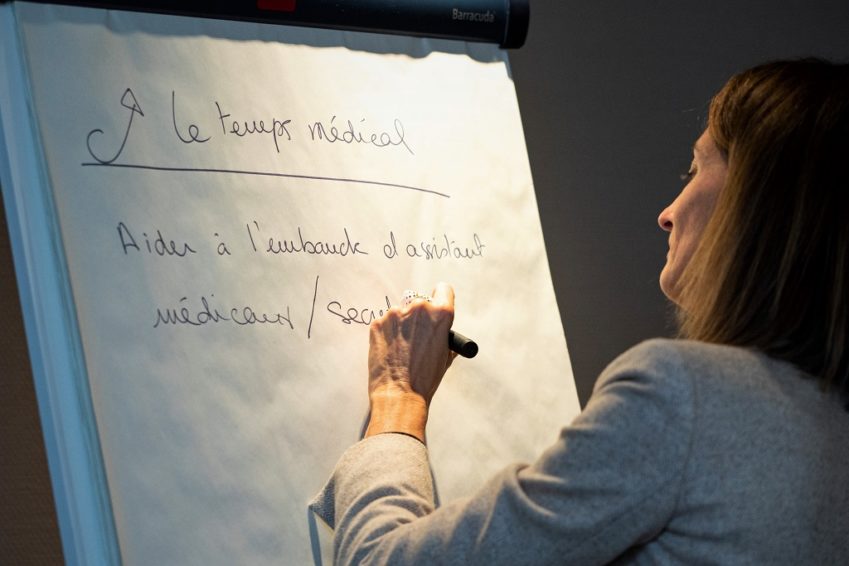 Barracuda
le temps médical
Aider à l'embauche d'assistant
médicaux / secré